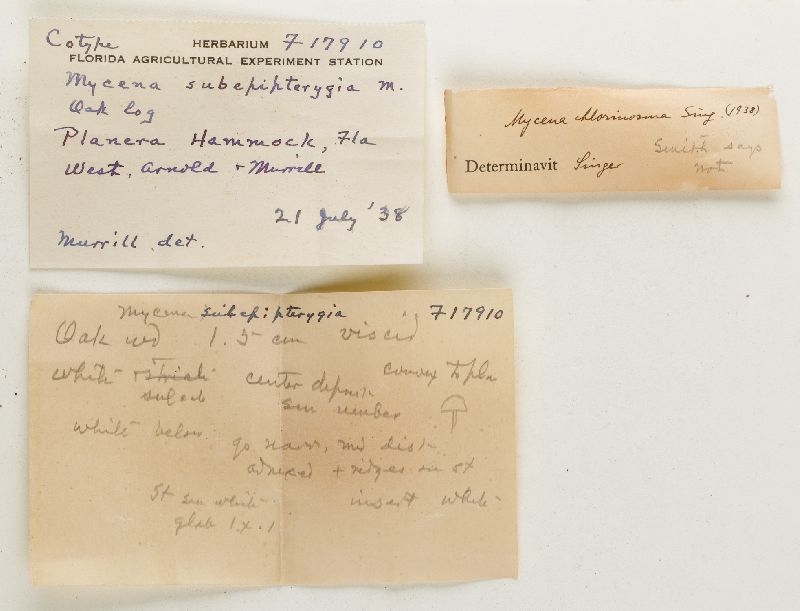 Cotype HERBARIUM F 17910
FLORIDA AGRICULTURAL EXPERIMENT STATION
Mycena subepipterygia M.
Oak log
Planera Hammock, Fla
West, Arnold + Murrill
21 July '38
Murrill det.
Mycena chlorinosma Sing. (1938)
Smith says
Determinavit Singer
not
Mycena subepipterygia F17910
Oak wd 1.5 cm viscid
white + striate center convex to pln
sm umber
white below
adnexed + ridges on st
St sm white insert white
glab 1 x .1